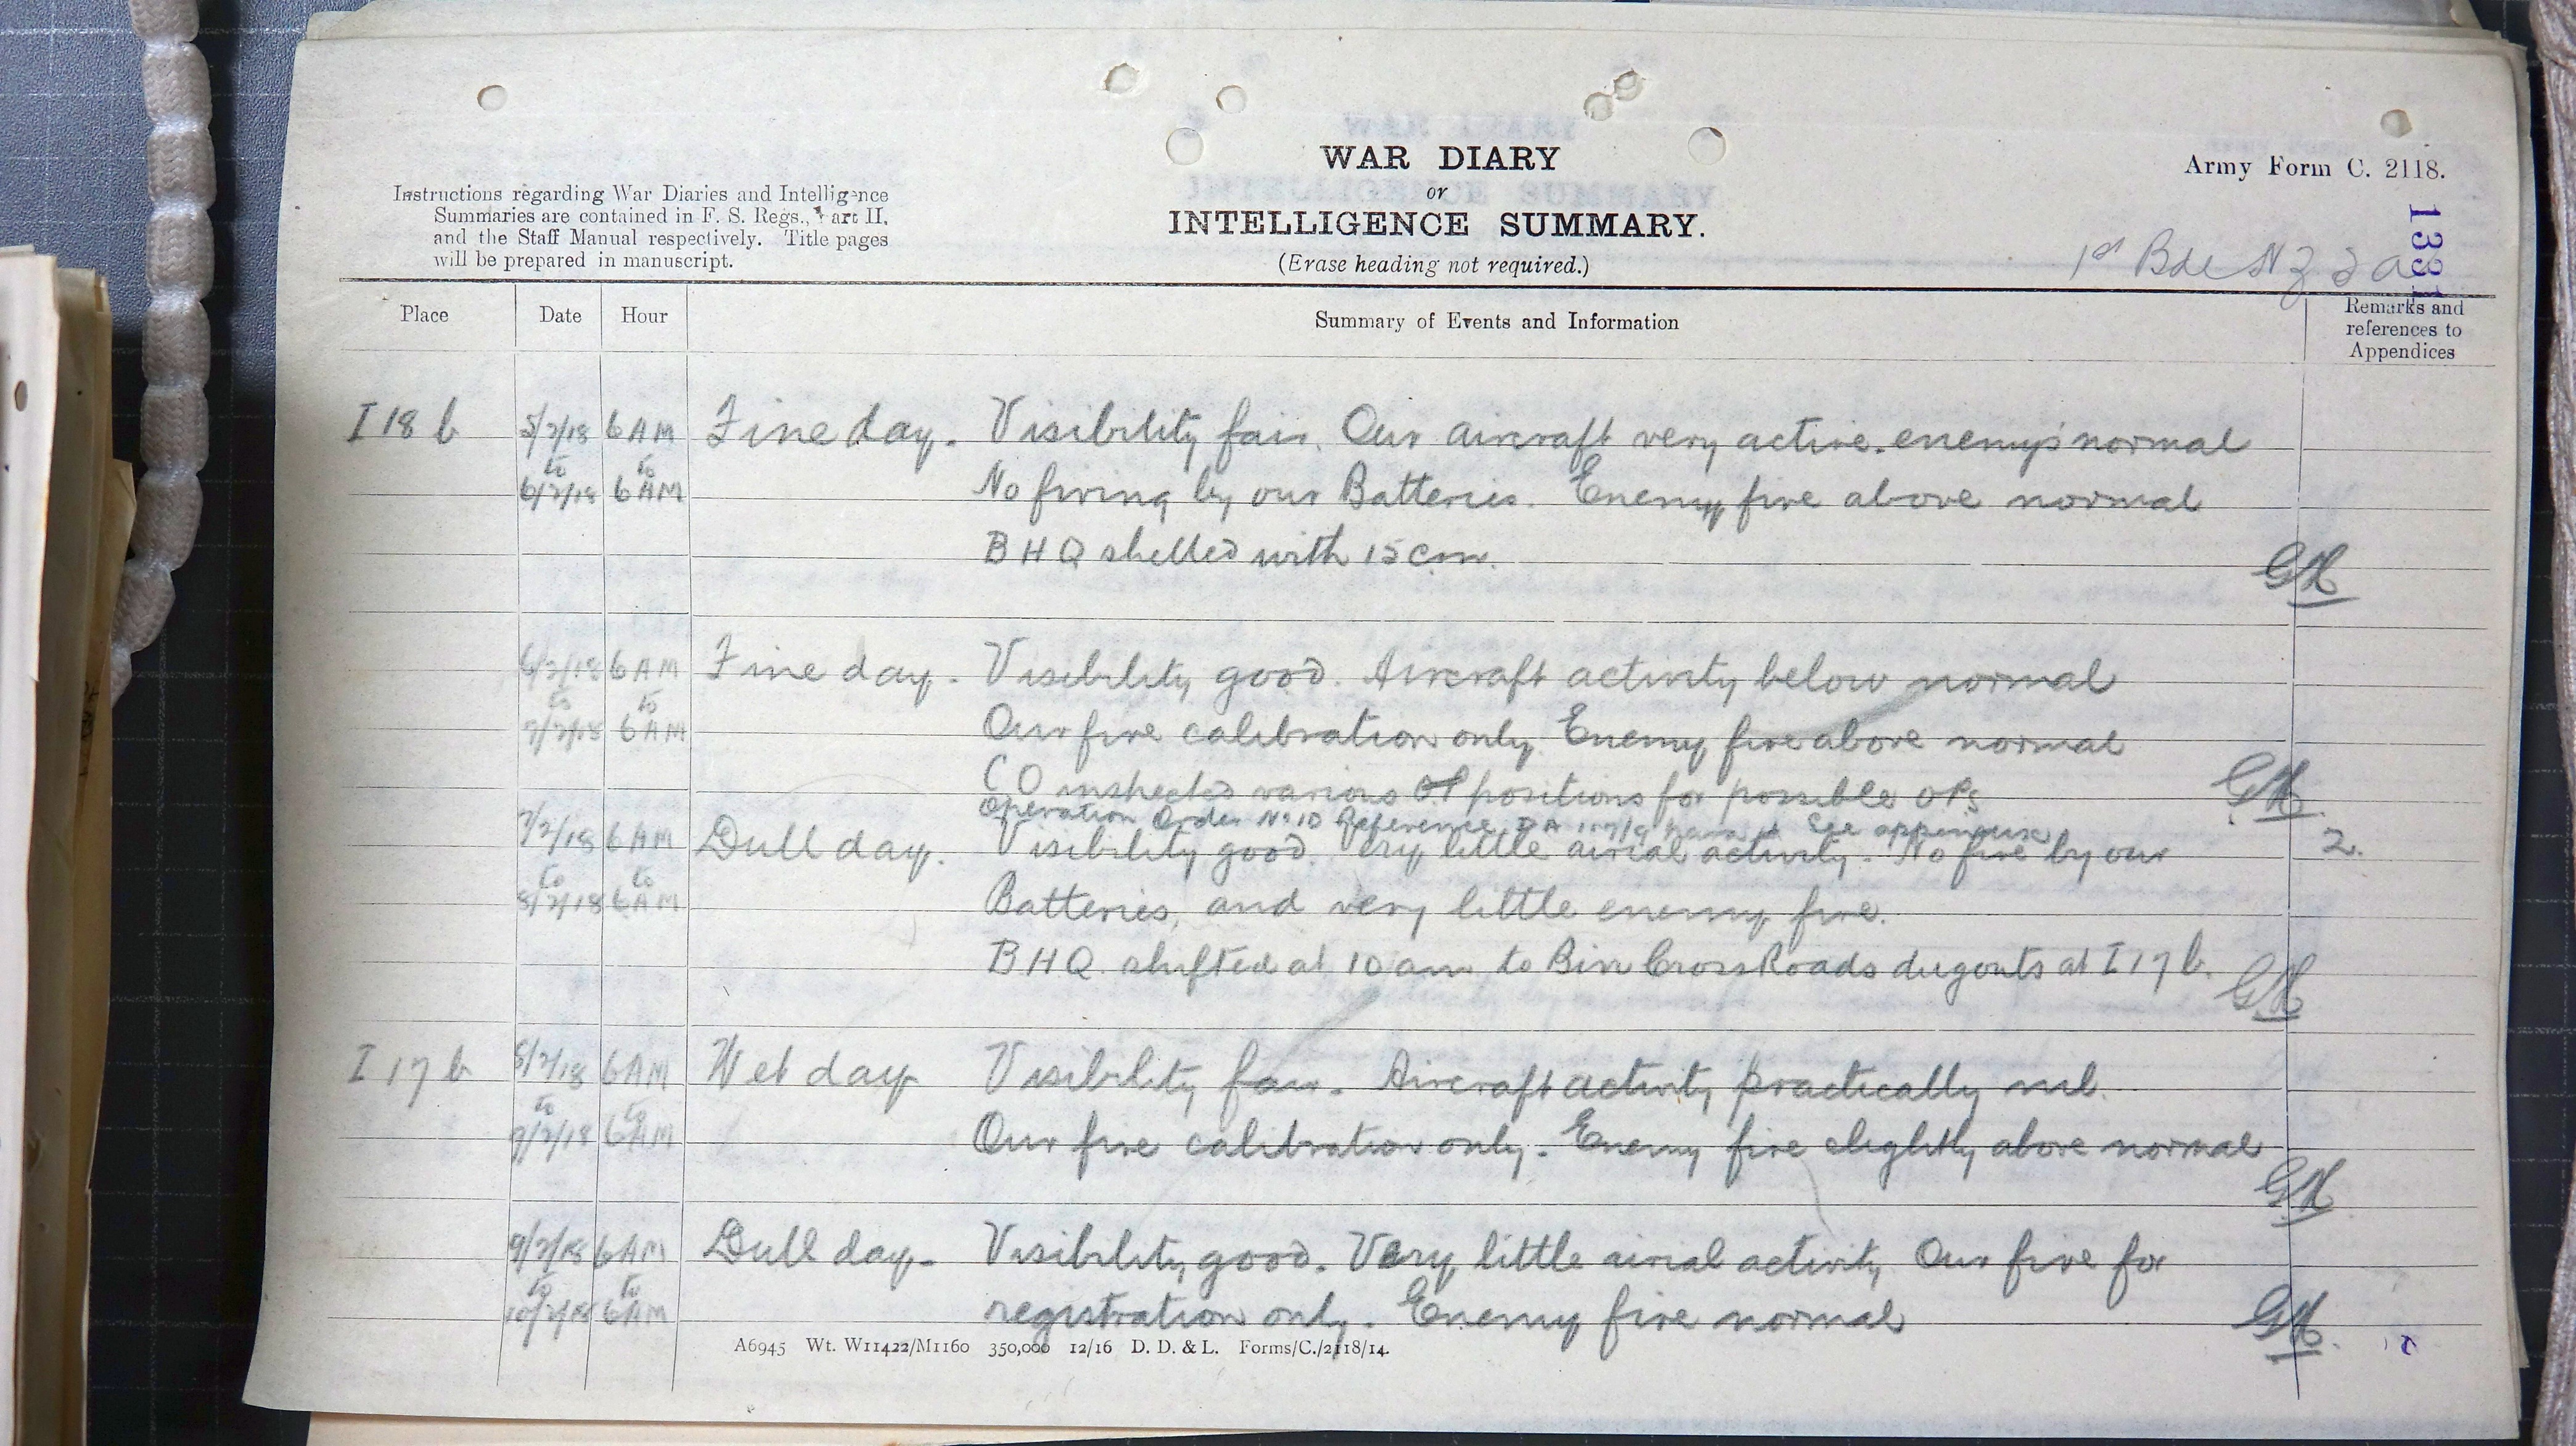 WAR DIARY
or
INTELLIGENCE SUMMARY.
(Erase heading not required.)
Army Form C. 2118.
Instructions regarding War Diaries and Intelligence
Summaries are contained in F. S. Regs., Part II.
and the Staff Manual respectively. Title pages
will be prepared in manuscript.
1331
1st Bde N Z F A
Place Date Hour Summary of Events and Information Remarks and
references to
Appendices
I 18 b 5/2/18 6 AM Fine day. Visibility fair. Our aircraft very active. enemy's normal
to to
6/2/18 6 AM No firing by our Batteries. Enemy fire above normal
BHQ shelled with 15 cm.
GK
6/2/18 6 AM Fine day. Visibility good. Aircraft activity below normal
to to
7/2/18 6 AM Our fire calibration only. Enemy fire above normal
CO inspected various OP positions for possible OPs GK
Operation Order No 10 Reference DA See appendix
7/2/18 6 AM Dull day. Visibility good. Very little airial activity. No fire by our 2.
to to
8/2/18 6 AM Batteries, and very little enemy fire.
BHQ shifted at 10 am to Birr Cross Roads dugouts at I 17 b. GK
I 17 b 8/2/18 6 AM Wet day Visibility fair. Aircraft activity practically nil.
to to
9/2/18 6 AM Our fire calibration only. Enemy fire slightly above normal
GK
9/2/18 6 AM Dull day. Visibility good. Very little airial activity Our fire for
to to
10/2/18 6 AM registration only. Enemy fire normal GK.
A6945 Wt. W11422/M1160 350,000 12/16 D. D. & L. Forms/C./2118/14.